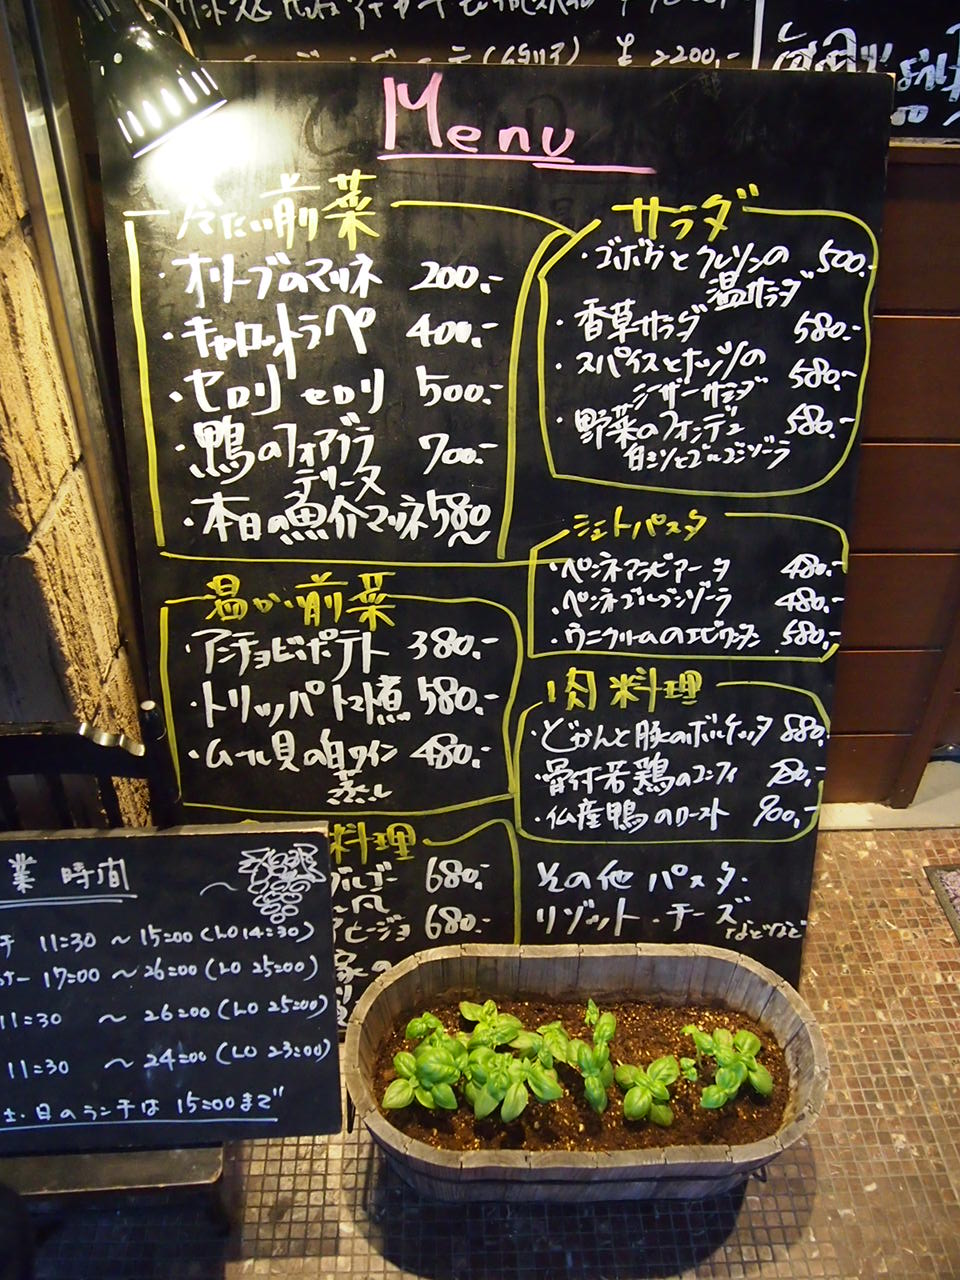 2200.-
Menu
冷たい前菜
・オリーブのマリネ 200.-
・キャロットラペ 400.-
・セロリ セロリ 500.-
・鴨のフォアグラ 700.-
テリーヌ
・本日の魚介マリネ 580〜
温かい前菜
・アンチョビポテト 380.-
・トリッパトマト煮 580.-
・ムール貝の白ワイン 480.-
蒸し
料理
680.-
680.-
サラダ
・ゴボウとクレソンの 500.-
温サラダ
・香草サラダ 580.-
・スパイスとナッツの 580.-
シーザーサラダ
・野菜のフォンデュ 580.-
白ミソとゴルゴンゾーラ
ショートパスタ
・ペンネアラビアータ 480.-
・ペンネゴルゴンゾーラ 480.-
・ウニクリームの 580.-
肉料理
・どかんと豚のボルケッタ 880.-
・骨付若鶏のコンフィ 780.-
・仏産鴨のロースト 900.-
その他 パスタ・
リゾット・チーズ
などなど
業時間
チ 11:30 〜 15:00 (LO 14:30)
ナー 17:00 〜 26:00 (LO 25:00)
11:30 〜 26:00 (LO 25:00)
11:30 〜 24:00 (LO 23:00)
土・日のランチは 15:00まで